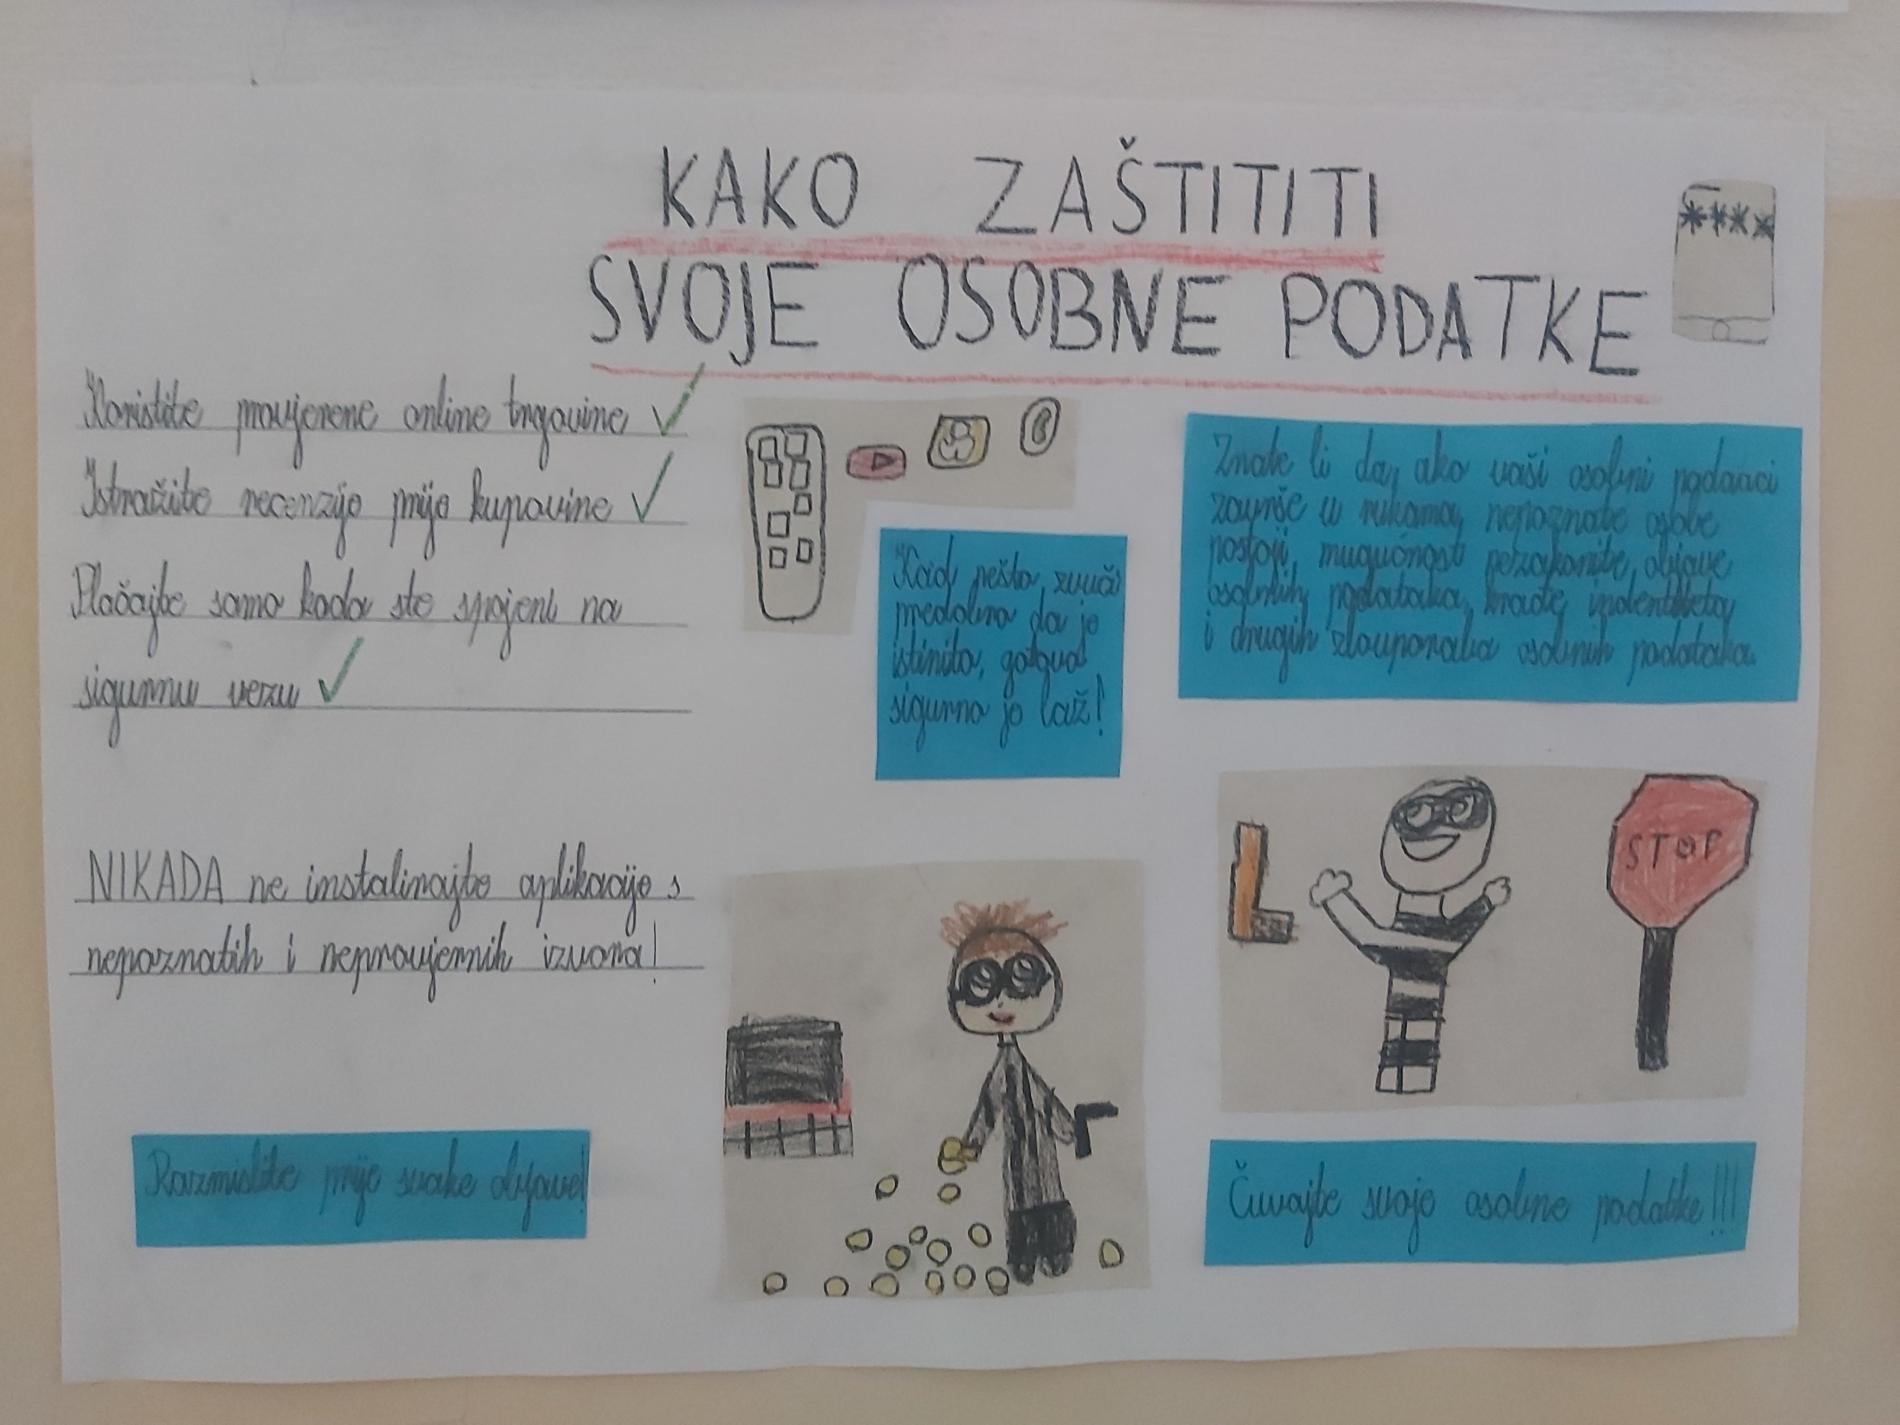 KAKO ZAŠTITITI
SVOJE OSOBNE PODATKE
****
Koristite provjerene online trgovine
Istražite recenzije prije kupovine
Plaćajte samo kada ste spojeni na
sigurnu vezu
NIKADA ne instalirajte aplikacije s
nepoznatih i neprovjernih izvora!
Razmislite prije svake objave!
Kad nešto zvuči
predobro da je
istinito, gotovo
sigurno je laž!
Znate li da, ako vaši osobni podaci
završe u rukama nepoznate osobe
postoji mogućnost nezakonite objave
osobnih podataka, krađe
i drugih zlouporaba osobnih podataka
STOP
Čuvajte svoje osobne podatke!!!